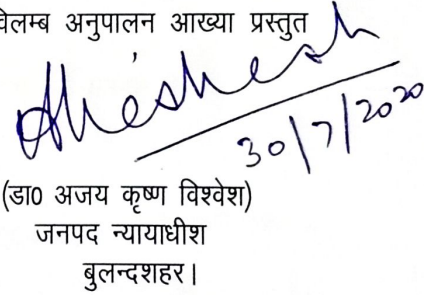 विलम्ब अनुपालन आख्या प्रस्तुत
30/7/2020
(डा0 अजय कृष्ण विश्वेश)
जनपद न्यायाधीश
बुलन्दशहर।